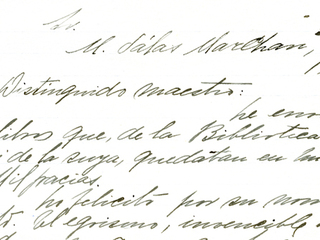 Sr.
M. Salas Marchan,
Distinguido maestro:
he env
libros que, de la Biblioteca
i de la suya, quedaban en
Mil gracias.
felicito por su nom
El egoismo, invencible